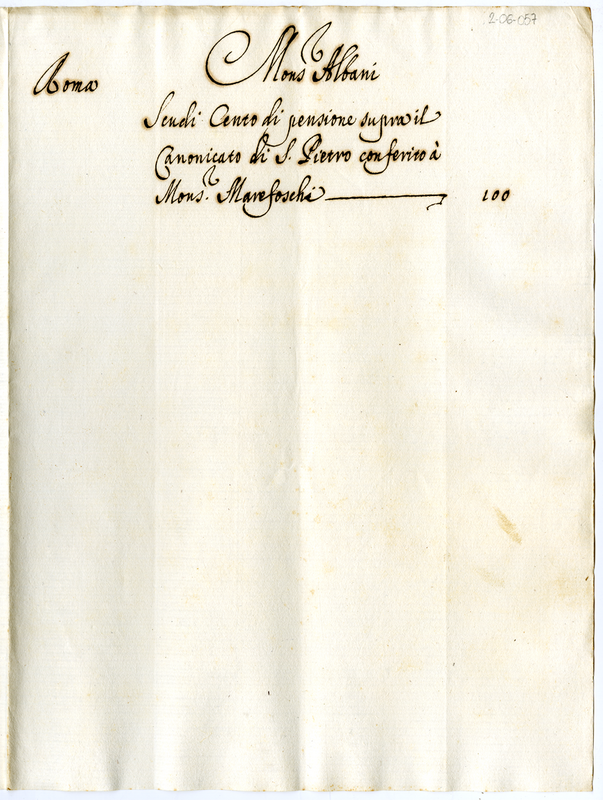 2-06-057
Mons.r Albani
Roma
Scudi Cento di pensione supra il
Canonicato di S. Pietro conferito à
Mons.r Marefoschi 100